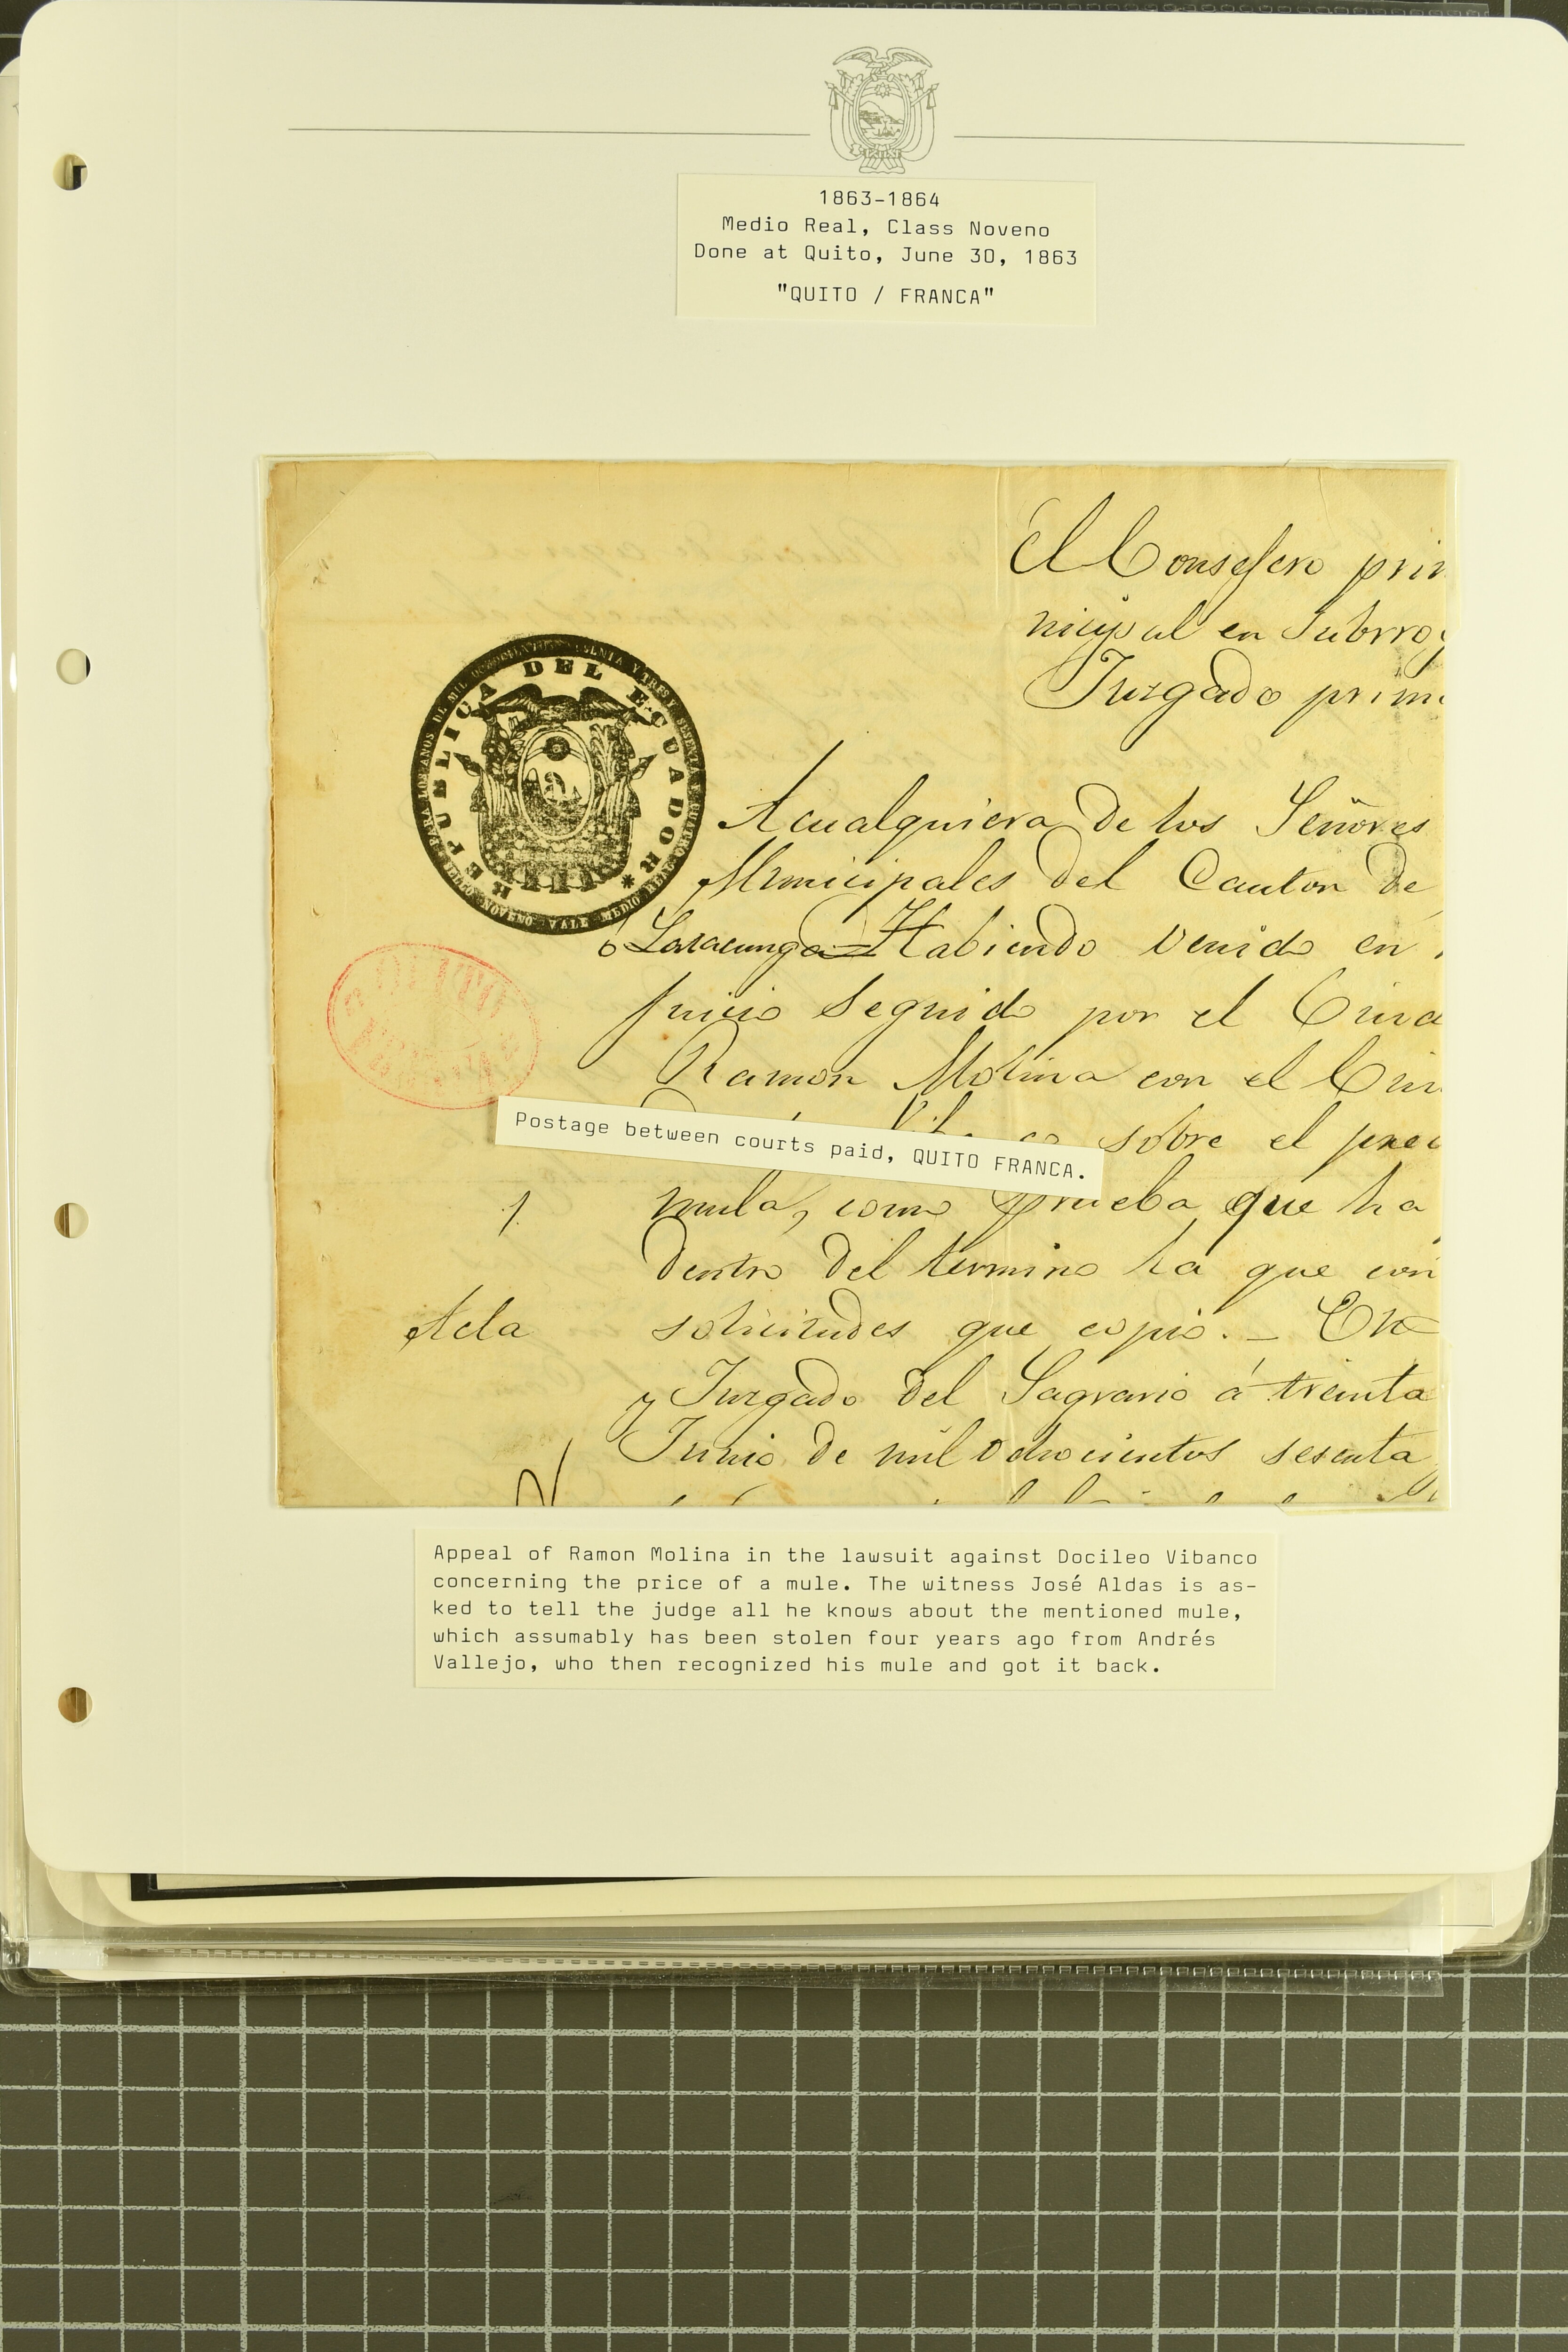 1863-1864
Medio Real, Class Noveno
Done at Quito, June 30, 1863
"QUITO / FRANCA"
El Consejero prin
nicipal en Subrrog
Juzgado prim
REPUBLICA DEL ECUADOR
NOVENO VALE MEDIO REAL
Acualquiera de los Señores
Municipales del Canton de
Latacunga = Habiendo venido en
juicio seguido por el Ciuda
QUITO
FRANCA
Ramon Molina con el Ciu
sobre el preci
Postage between courts paid, QUITO FRANCA.
mula, como prueba que ha
1
dentro del termino ha que con
Acta
solicitudes que copio. — En
y Juzgado del Sagrario á treinta
Junio de mil ochocientos sesenta
Appeal of Ramon Molina in the lawsuit against Docileo Vibanco
concerning the price of a mule. The witness José Aldas is as-
ked to tell the judge all he knows about the mentioned mule,
which assumably has been stolen four years ago from Andrés
Vallejo, who then recognized his mule and got it back.